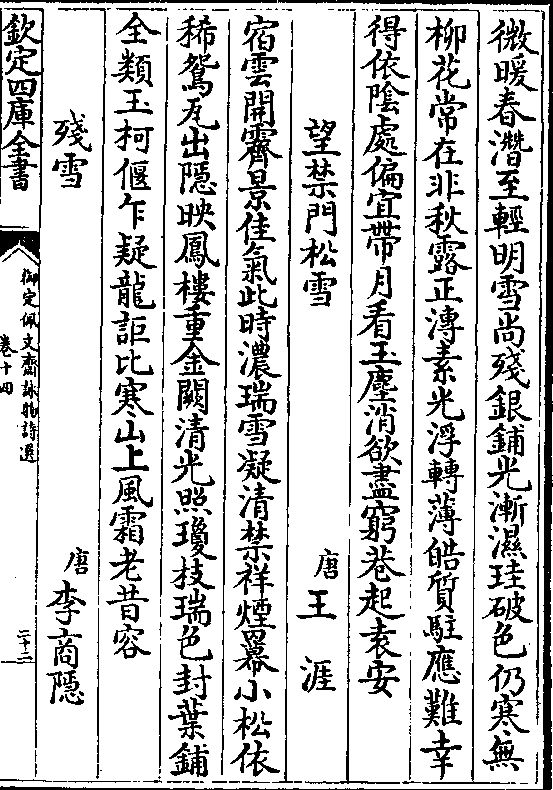 微暖春潛至輕明雪尚殘銀鋪光漸濕珪破色仍寒無
柳花常在非秋露正漙素光浮轉薄皓質駐應難幸
得依陰處偏宜帶月看玉塵消欲盡窮巷起袁安
望禁門松雪 唐 王涯
宿雲開霽景佳氣此時濃瑞雪凝清禁祥煙羃小松依
稀鴛瓦出隱映鳳樓重金闕清光照瓊枝瑞色封葉鋪
全類玉柯偃乍疑龍詎比寒山上風霜老昔容
殘雪 唐 李商隱
欽定四庫全書
御定佩文齋詠物詩選
卷十四
二十二